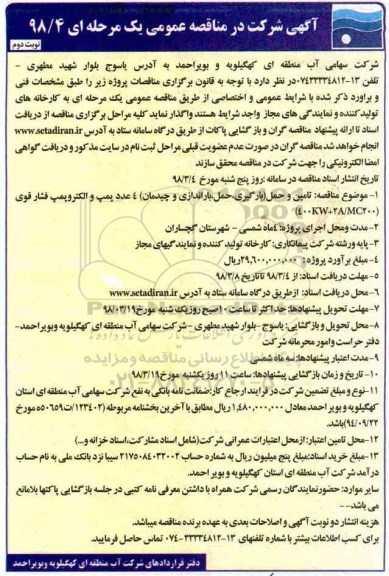 آگهی شرکت در مناقصه عمومی یک مرحله ای ۹۸/۴
نوبت دوم
شرکت سهامی آب منطقه ای کهگیلویه و بویراحمد به آدرس یاسوج بلوار شهید مطهری -
تلفن ۱۳-۰۷۴۳۳۳۳۴۸۱۲ در نظر دارد با توجه به قانون برگزاری مناقصات پروژه زیر را طبق مشخصات فنی
و براورد ذکر شده با شرایط عمومی و اختصاصی از طریق مناقصه عمومی یک مرحله ای به کارخانه های
تولید کننده و نمایندگی های مجاز واجد شرایط هستند واگذار نماید کلیه مراحل برگزاری مناقصه از دریافت
اسناد تا ارائه پیشنهاد مناقصه گران و بازگشایی پاکات از طریق درگاه سامانه ستاد به آدرس www.setadiran.ir
انجام خواهد شد مناقصه گران در صورت عدم عضویت قبلی مراحل ثبت نام در سایت مذکور و دریافت گواهی
امضا الکترونیکی را جهت شرکت در مناقصه محقق سازند
تاریخ انتشار اسناد مناقصه در سامانه : روز پنج شنبه مورخ ۹۸/۳/۴
۱-موضوع مناقصه: تامین و حمل (بارگیری، حمل، باراندازی و چیدمان) ۴ عدد پمپ و الکتروپمپ فشار قوی
(۴۰۰KW+۲۸/MC۲۰۰)
۲-مدت ومحل اجرای پروژه: ۴ماه شمسی - شهرستان گچساران
۳-پایه ورشته شرکت پیمانکاری: کارخانه تولید کننده و نمایندگیهای مجاز
۴-مبلغ برآورد پروژه: ۲۹,۶۰۰,۰۰۰,۰۰۰ریال
۵-مهلت دریافت اسناد: از ۹۸/۳/۴ تا تاریخ ۹۸/۳/۸
۶-محل دریافت اسناد: ازطریق درگاه سامانه ستاد به آدرس www.setadiran.ir
۷-مهلت تحویل پیشنهادها: حداکثر تا ساعت ۱۰صبح روزیک شنبه مورخ۹۸/۰۳/۱۹
۸-محل تحویل و بازگشایی: یاسوج- بلوار شهید مطهری - شرکت سهامی آب منطقه ای کهگیلویه وبویراحمد-
دفتر حراست وامور محرمانه شرکت
۹-مدت اعتبار پیشنهادها: سه ماه شمسی
۱۰-تاریخ و زمان بازگشایی پیشنهادها: ساعت ۱۱ روز یکشنبه مورخ۹۸/۳/۱۹
۱۱-نوع و مبلغ تضمین شرکت در فرایند ارجاع کار: ضمانت نامه بانکی به نفع شرکت سهامی آب منطقه ای استان
کهگیلویه و بویراحمد معادل ۱,۴۸۰,۰۰۰,۰۰۰ ریال مطابق با آخرین بخشنامه مربوطه (۱۲۳۴۰۲/ت۵۰۶۵۹ه مورخ
۹۴/۰۹/۲۲)باشد.
۱۲-محل تامین اعتبار: ازمحل اعتبارات عمرانی شرکت(شامل اسناد مشارکت، اسناد خزانه و...)
۱۳-مبلغ خرید اسناد: مبلغ پنج میلیون ریال به شماره حساب ۲۱۷۵۰۸۴۰۳۲۰۰۲ سیبا نزد بانک ملی به نام حساب
درآمد شرکت آب منطقه ای استان کهگیلویه و بویر احمد.
سایر موارد: حضورنمایندگان رسمی شرکت همراه با داشتن معرفی نامه کتبی در جلسه بازگشایی پاکتها بلامانع
می باشد--
هزینه انتشار دو نوبت آگهی و اصلاحات بعدی به عهده برنده مناقصه میباشد.
برای کسب اطلاعات بیشتر با شماره تلفنهای ۱۳-۰۷۴-۳۳۳۳۴۸۱۲ تماس حاصل فرمایید.
دفتر قراردادهای شرکت آب منطقه ای کهگیلویه وبویراحمد